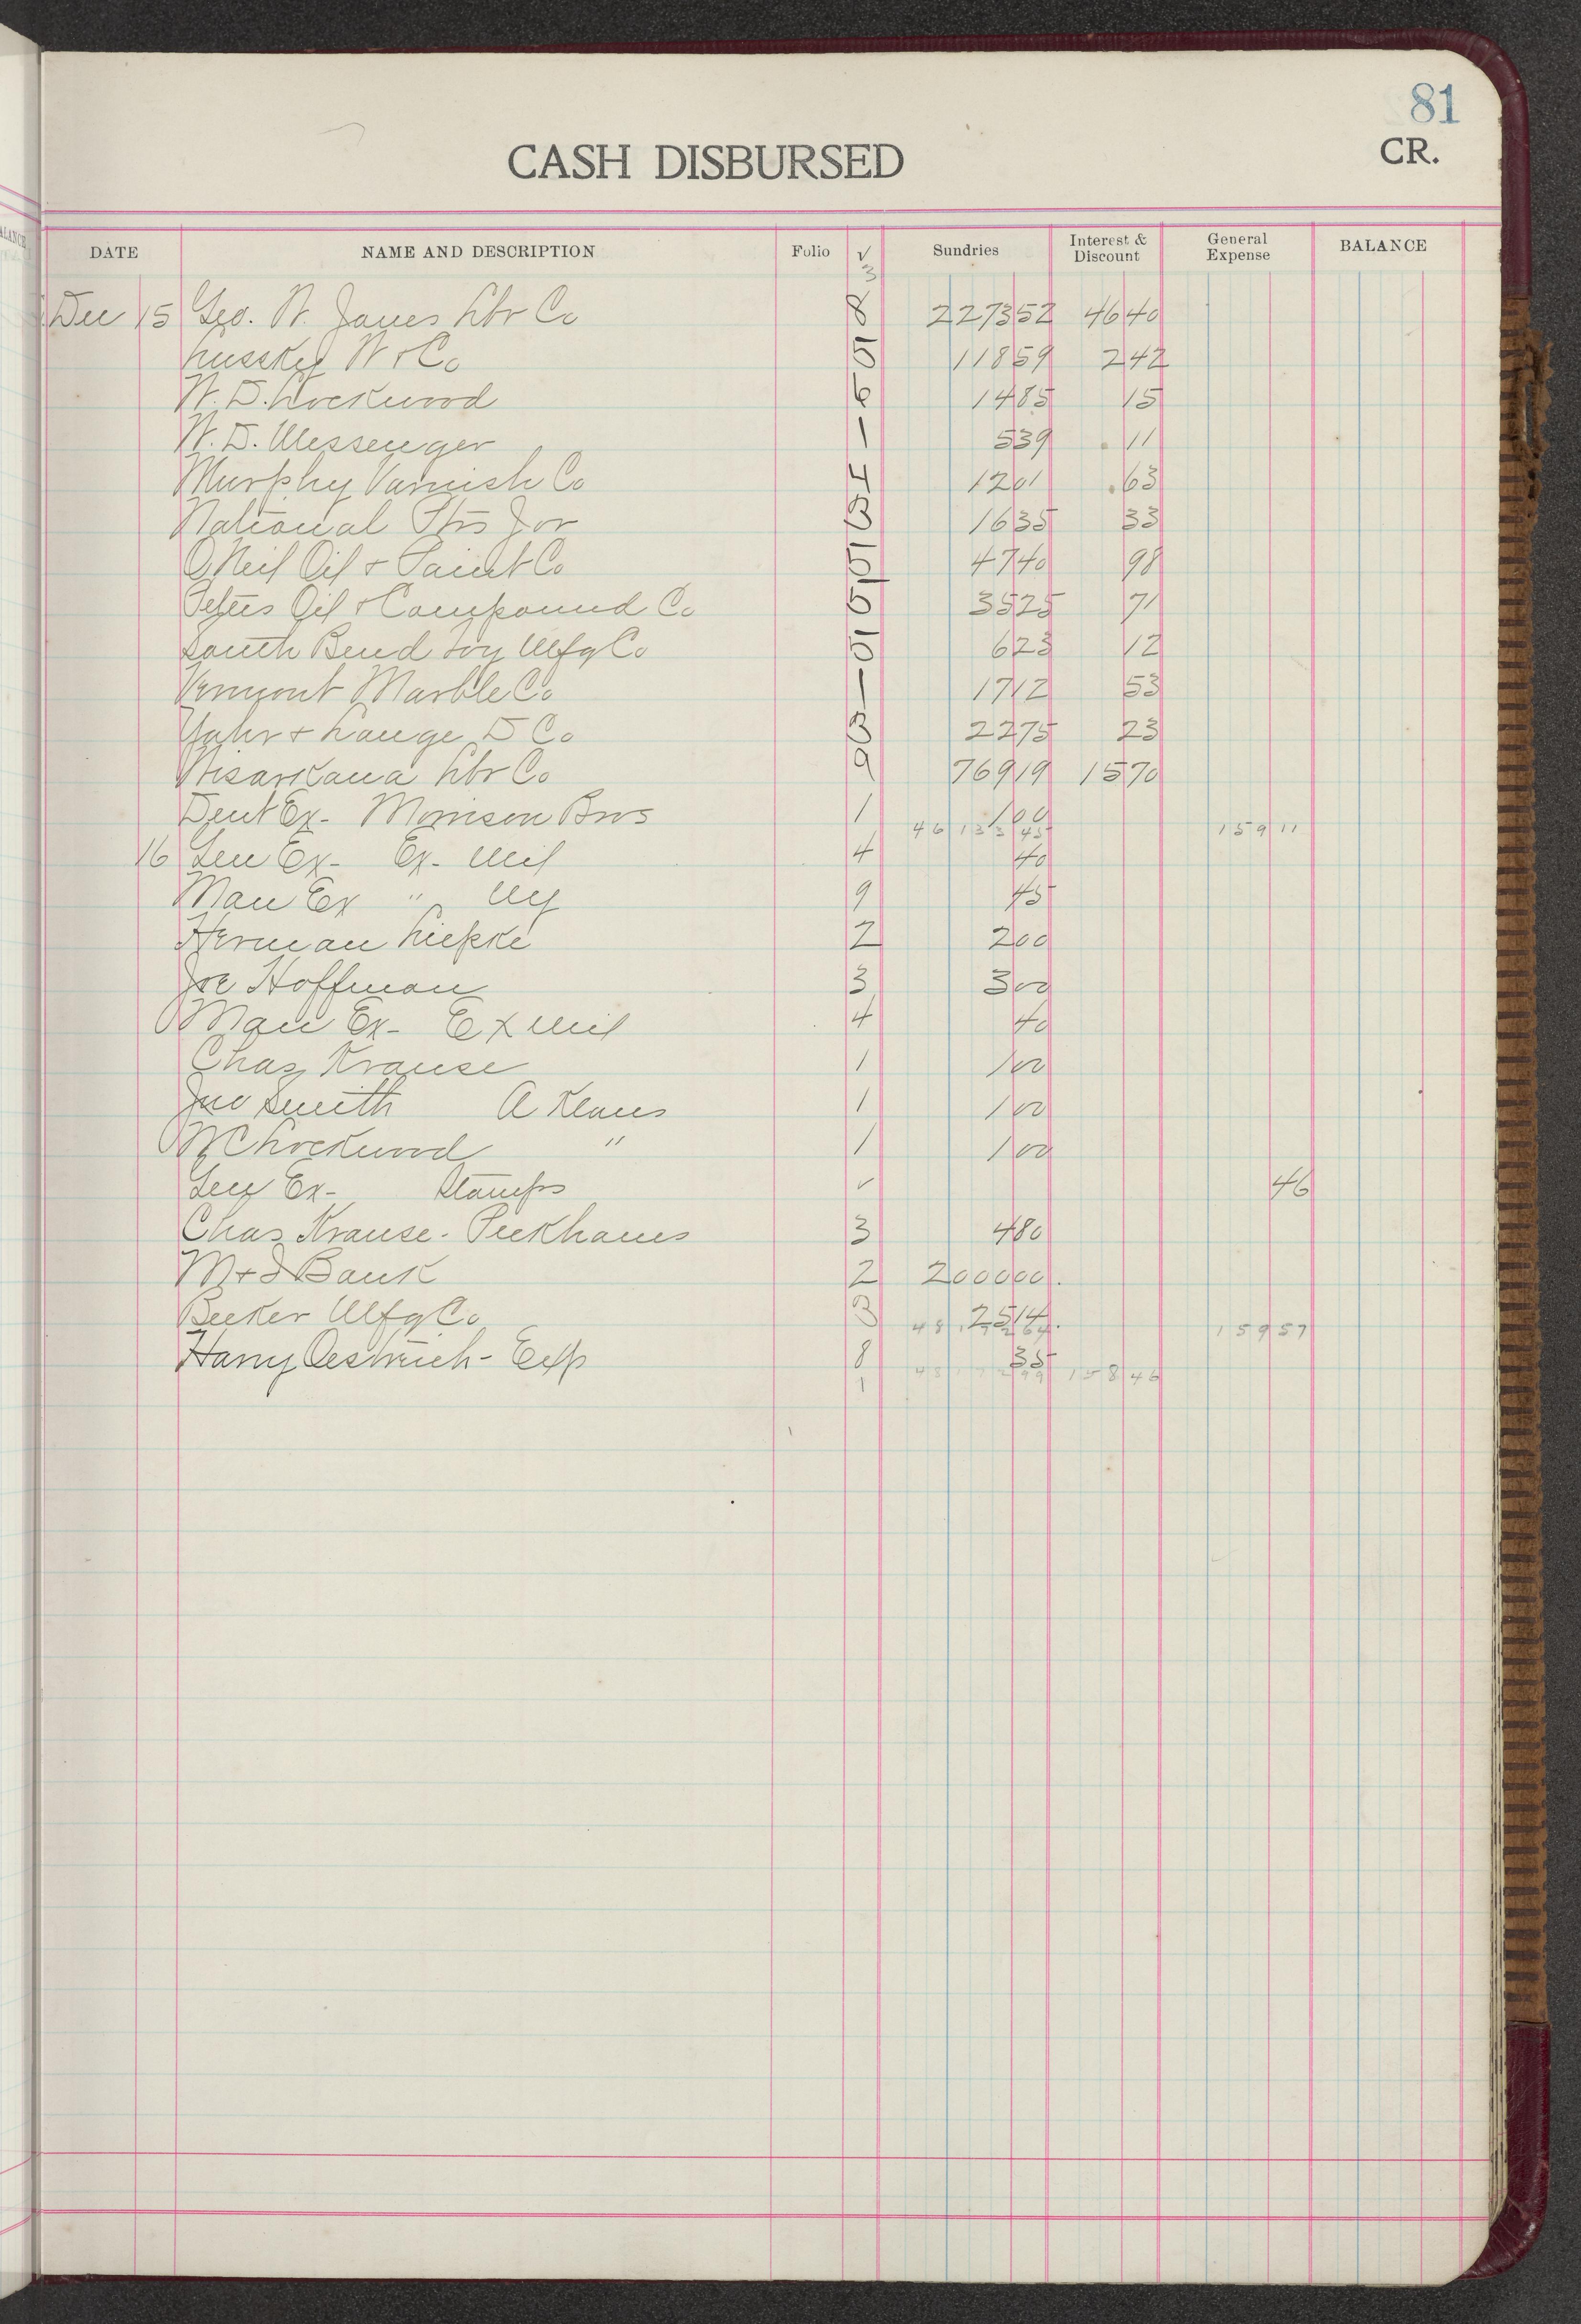 81
CASH DISBURSED
CR.
DATE NAME AND DESCRIPTION Folio √ Sundries Interest & Discount General Expense BALANCE
3
Dec 15 Geo. W. Jones Lbr Co 8 2273 52 46 40
W & Co 5 118 59 2 42
W. D. Lockwood 14 85 15
W. D. Messenger 1 5 39 11
Murphy Varnish Co 12 01 63
National Jor 3 16 35 33
O Neil Oil & Paint Co 5 47 40 98
Peters Oil & Compound Co 5 35 25 71
South Bend Toy Mfg Co 5 6 23 12
Vermont Marble Co 1 17 12 53
Yahr & Lange D Co 3 22 75 23
Wisarkana Lbr Co 9 769 19 15 70
Dent Ex- Morrison Bros 1 1 00
46 133 45 159 11
16 Gen Ex- Ex- Mil 4 40
Man Ex " 9 45
Herman Liepke 2 2 00
Joe Hoffman 3 3 00
Man Ex- Ex Mil 4 40
Chas Krause 1 1 00
Jno Smith A Klaus 1 1 00
W C Lockwood " 1 1 00
Gen Ex- Stamps √ 46
Chas Krause - Peekhaus 3 4 80
M & I Bank 2 2000 00
Becker Mfg Co 3 25 14
48 172 64 159 57
Harry Oestreich - Exp 8 35
48 172 99 158 46
1